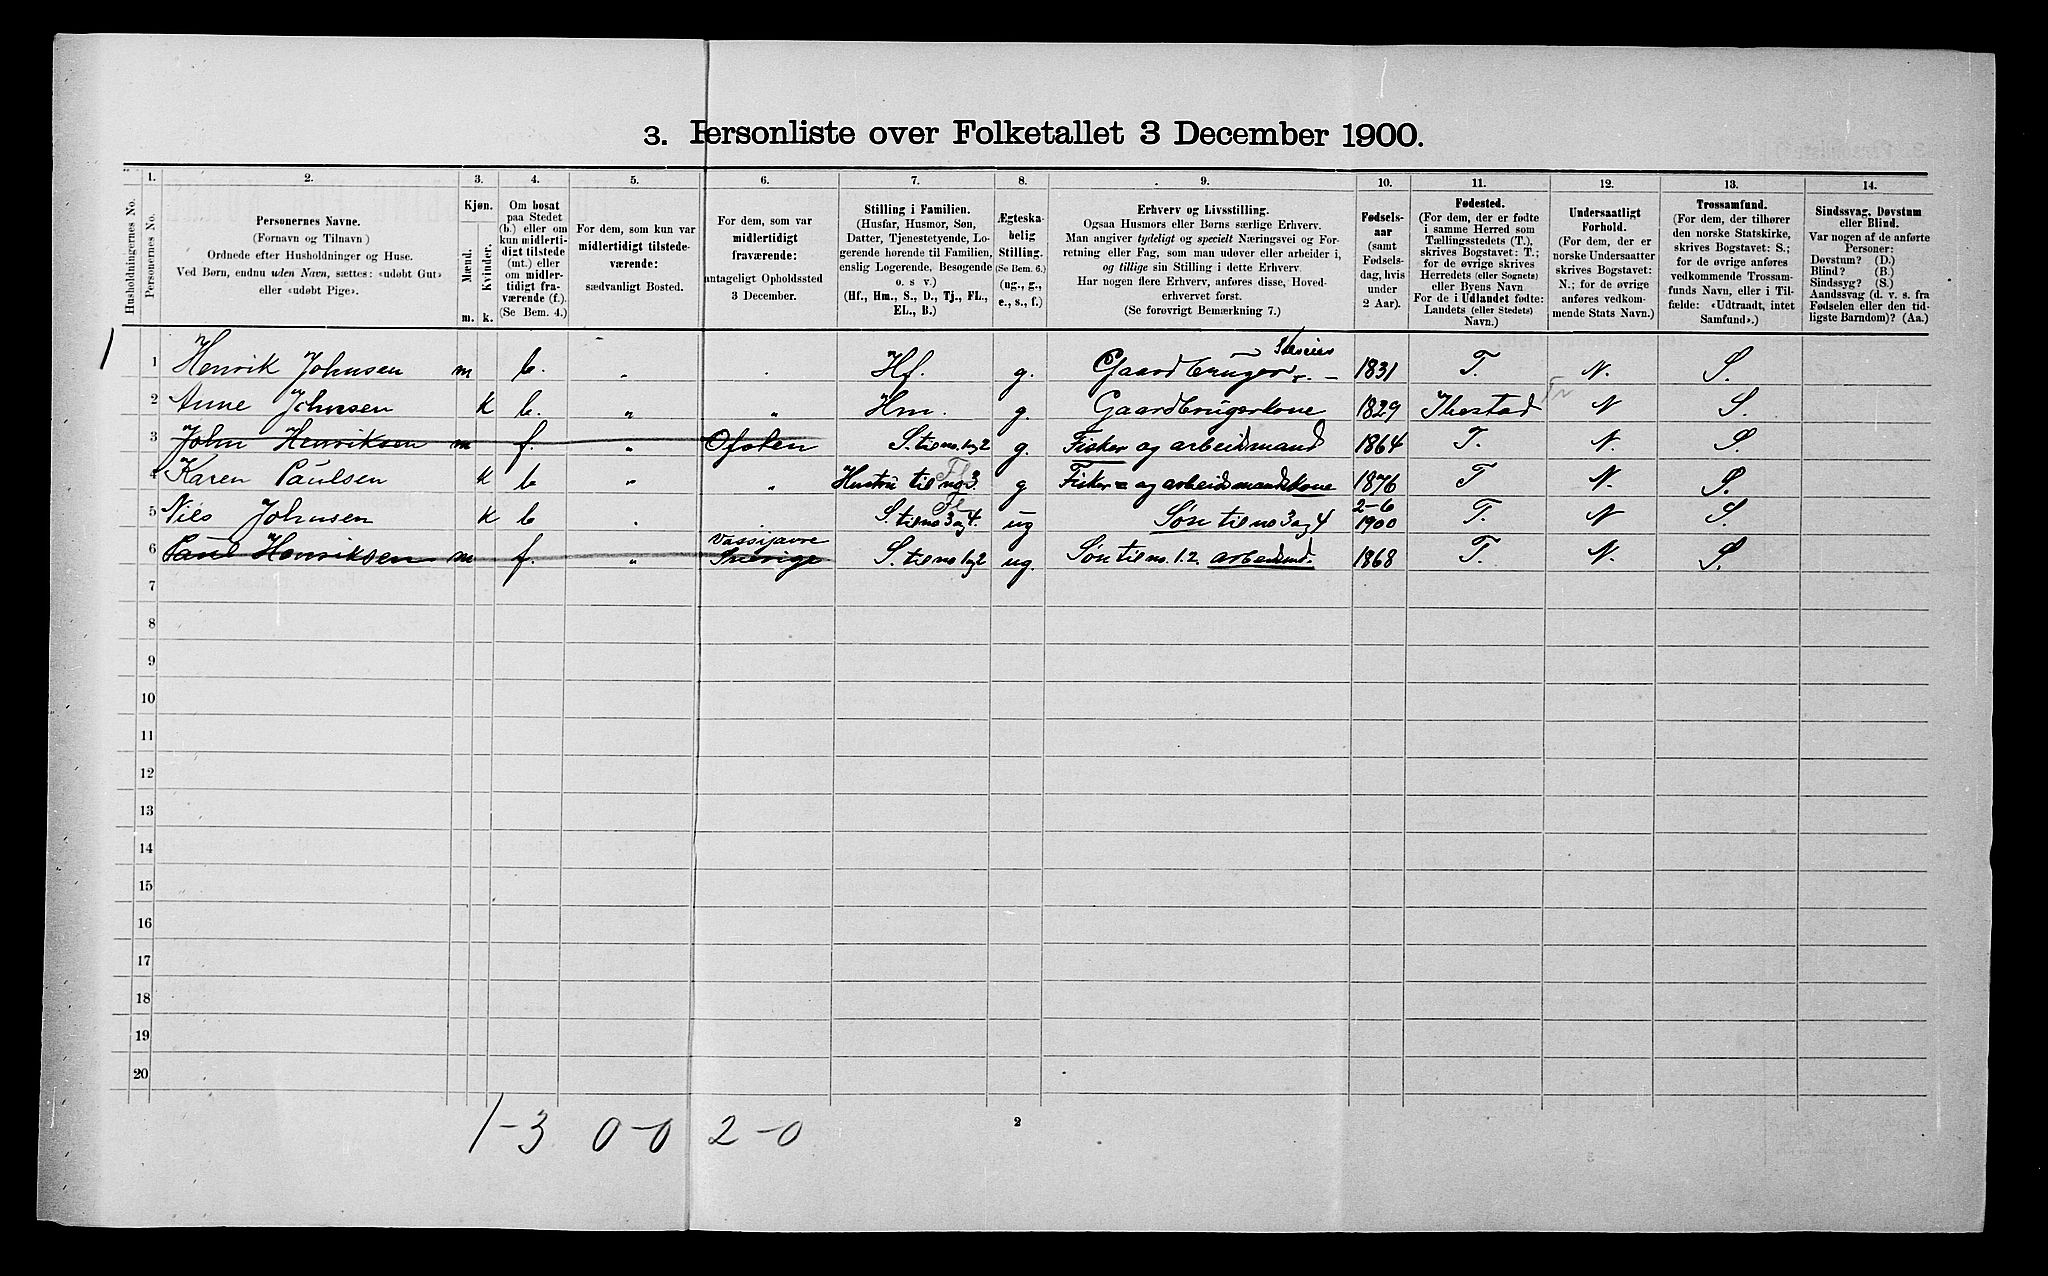 3. Personliste over Folketallet 3 December 1900.
1. 2. 3. 4. 5. 6. 7. 8. 9. 10. 11. 12. 13. 14.
Husholdningernes No.
Personernes No.
Personernes Navne.
(Fornavn og Tilnavn)
Ordnede efter Husholdninger og Huse.
Ved Børn, endnu uden Navn, sættes: «udøbt Gut»
eller «udøbt Pige».
Kjøn.
Mænd.
Kvinder.
m. k.
Om bosat
paa Stedet
(b.) eller om
kun midlerti-
digt tilstede
(mt.) eller
om midler-
tidigt fra-
værende (f.).
(Se Bem. 4.)
For dem, som kun var
midlertidigt tilstede-
værende:
sædvanligt Bosted.
For dem, som var
midlertidigt
fraværende:
antageligt Opholdssted
3 December.
Stilling i Familien.
(Husfar, Husmor, Søn,
Datter, Tjenestetyende, Lo-
gerende hørende til Familien,
enslig Logerende, Besøgende
o. s v.)
(Hf., Hm., S., D., Tj., FL.,
EL., B.)
Ægteska-
belig
Stilling.
(Se Bem. 6.)
(ug., g.,
e., s., f.)
Erhverv og Livsstilling.
Ogsaa Husmors eller Børns særlige Erhverv.
Man angiver tydeligt og specielt Næringsvei og For-
retning eller Fag, som man udøver eller arbeider i,
og tillige sin Stilling i dette Erhverv.
Har nogen flere Erhverv, anføres disse, Hoved-
erhvervet først.
(Se forøvrigt Bemærkning 7.)
Fødsels-
aar
(samt
Fødsels-
dag, hvis
under
2 Aar).
Fødested.
(For dem, der er fødte
i samme Herred som
Tællingsstedets (T.),
skrives Bogstavet: T.;
for de øvrige skrives
Herredets (eller Sognets)
eller Byens Navn
For de i Udlandet fødte:
Landets (eller Stedets)
Navn.)
Undersaatligt
Forhold.
(For dem, der er
norske Undersaatter
skrives Bogstavet:
N.; for de øvrige
anføres vedkom-
mende Stats Navn.)
Trossamfund.
(For dem, der tilhører
den norske Statskirke,
skrives Bogstavet: S.;
for de øvrige anføres
vedkommende Trossam-
funds Navn, eller i Til-
fælde: «Udtraadt, intet
Samfund».)
Sindssvag, Døvstum
eller Blind.
Var nogen af de anførte
Personer:
Døvstum? (D.)
Blind? (B.)
Sindssyg? (S.)
Aandssvag (d. v. s. fra
Fødselen eller den tid-
ligste Barndom)? (Aa.)
1 1 Henrik Johnsen m b. " Hf. g. Gaardbruger Selveier 1831 T. N. S.
2 Anne Johnsen k b. " " Hm. g. Gaardbrugerkone 1829 Ibestad Tr N S.
3 John Henriksen m f. " Ofoten S. til no. 1 og 2 g. Fisker og arbeidsmand 1864 T. N. S.
4 Karen Paulsen k b " " Hustru til no 3. Fl g Fisker = og arbeidsmandskone 1876 T N. S.
5 Nils Johnsen k b S. til no 3 og 4. Fl ug Søn til no 3 og 4 2-6 1900 T. N S.
6 Paul Henriksen m f. " Vassijavre Sverige S. til no 1 og 2 ug. Søn til no. 1. 2. arbeidsmd. 1868 T. N. S.
7
8
9
10
11
12
13
14
15
16
17
18
19
20
1-3 0-0 2-0
2